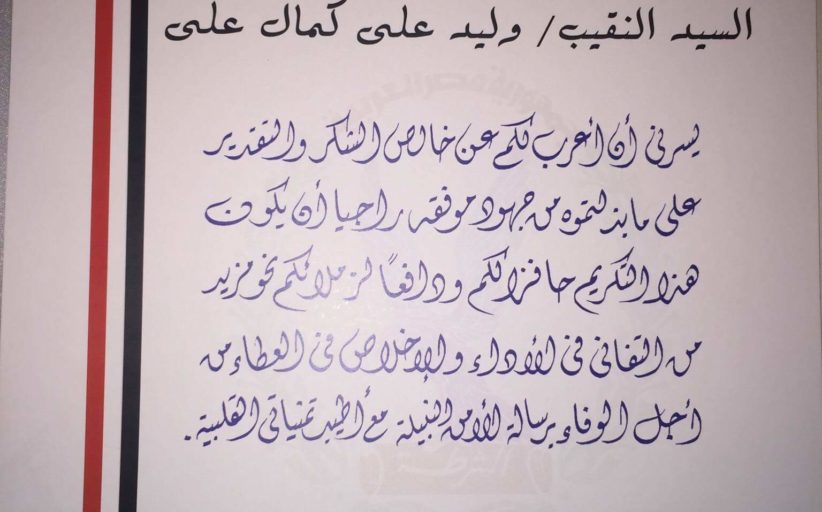 السيد النقيب/ وليد على كمال على
يسرنى أن أعرب لكم عن خالص الشكر والتقدير
على ما بذلتموه من جهود موفقه راجيا أن يكون
هذا التكريم حافزا لكم ودافعاً لزملائكم نحو مزيد
من التفانى فى الأداء والإخلاص فى العطاء من
أجل الوفاء برسالة الأمن النبيلة مع أطيب تمنياتى القلبية.